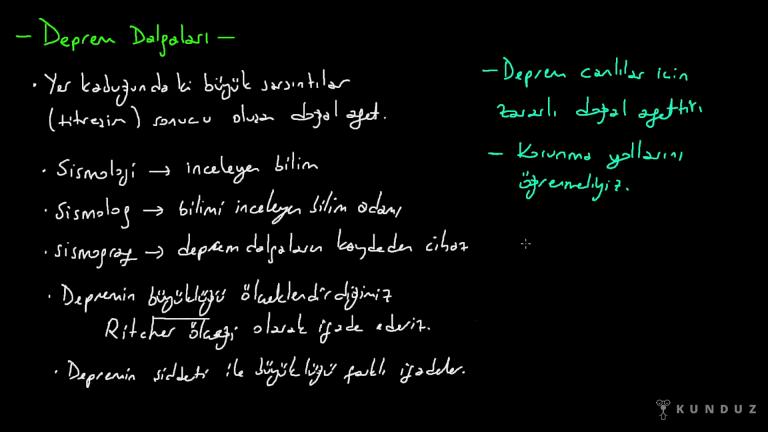 - Deprem Dalgaları -
• Yer kabuğundaki büyük sarsıntılar
(titreşim) sonucu oluşan doğal afet.
• Sismoloji → inceleyen bilim
• Sismolog → bilimi inceleyen bilim adamı
• sismograf → deprem dalgalarını kaydeden cihaz
• Depremin büyüklüğü ölçeklendirdiğimiz
Ritcher ölçeği olarak ifade ederiz.
• Depremin şiddeti ile büyüklüğü farklı ifadeler.
- Deprem canlılar için
zararlı doğal afettir.
- Korunma yollarını
öğrenmeliyiz.
KUNDUZ